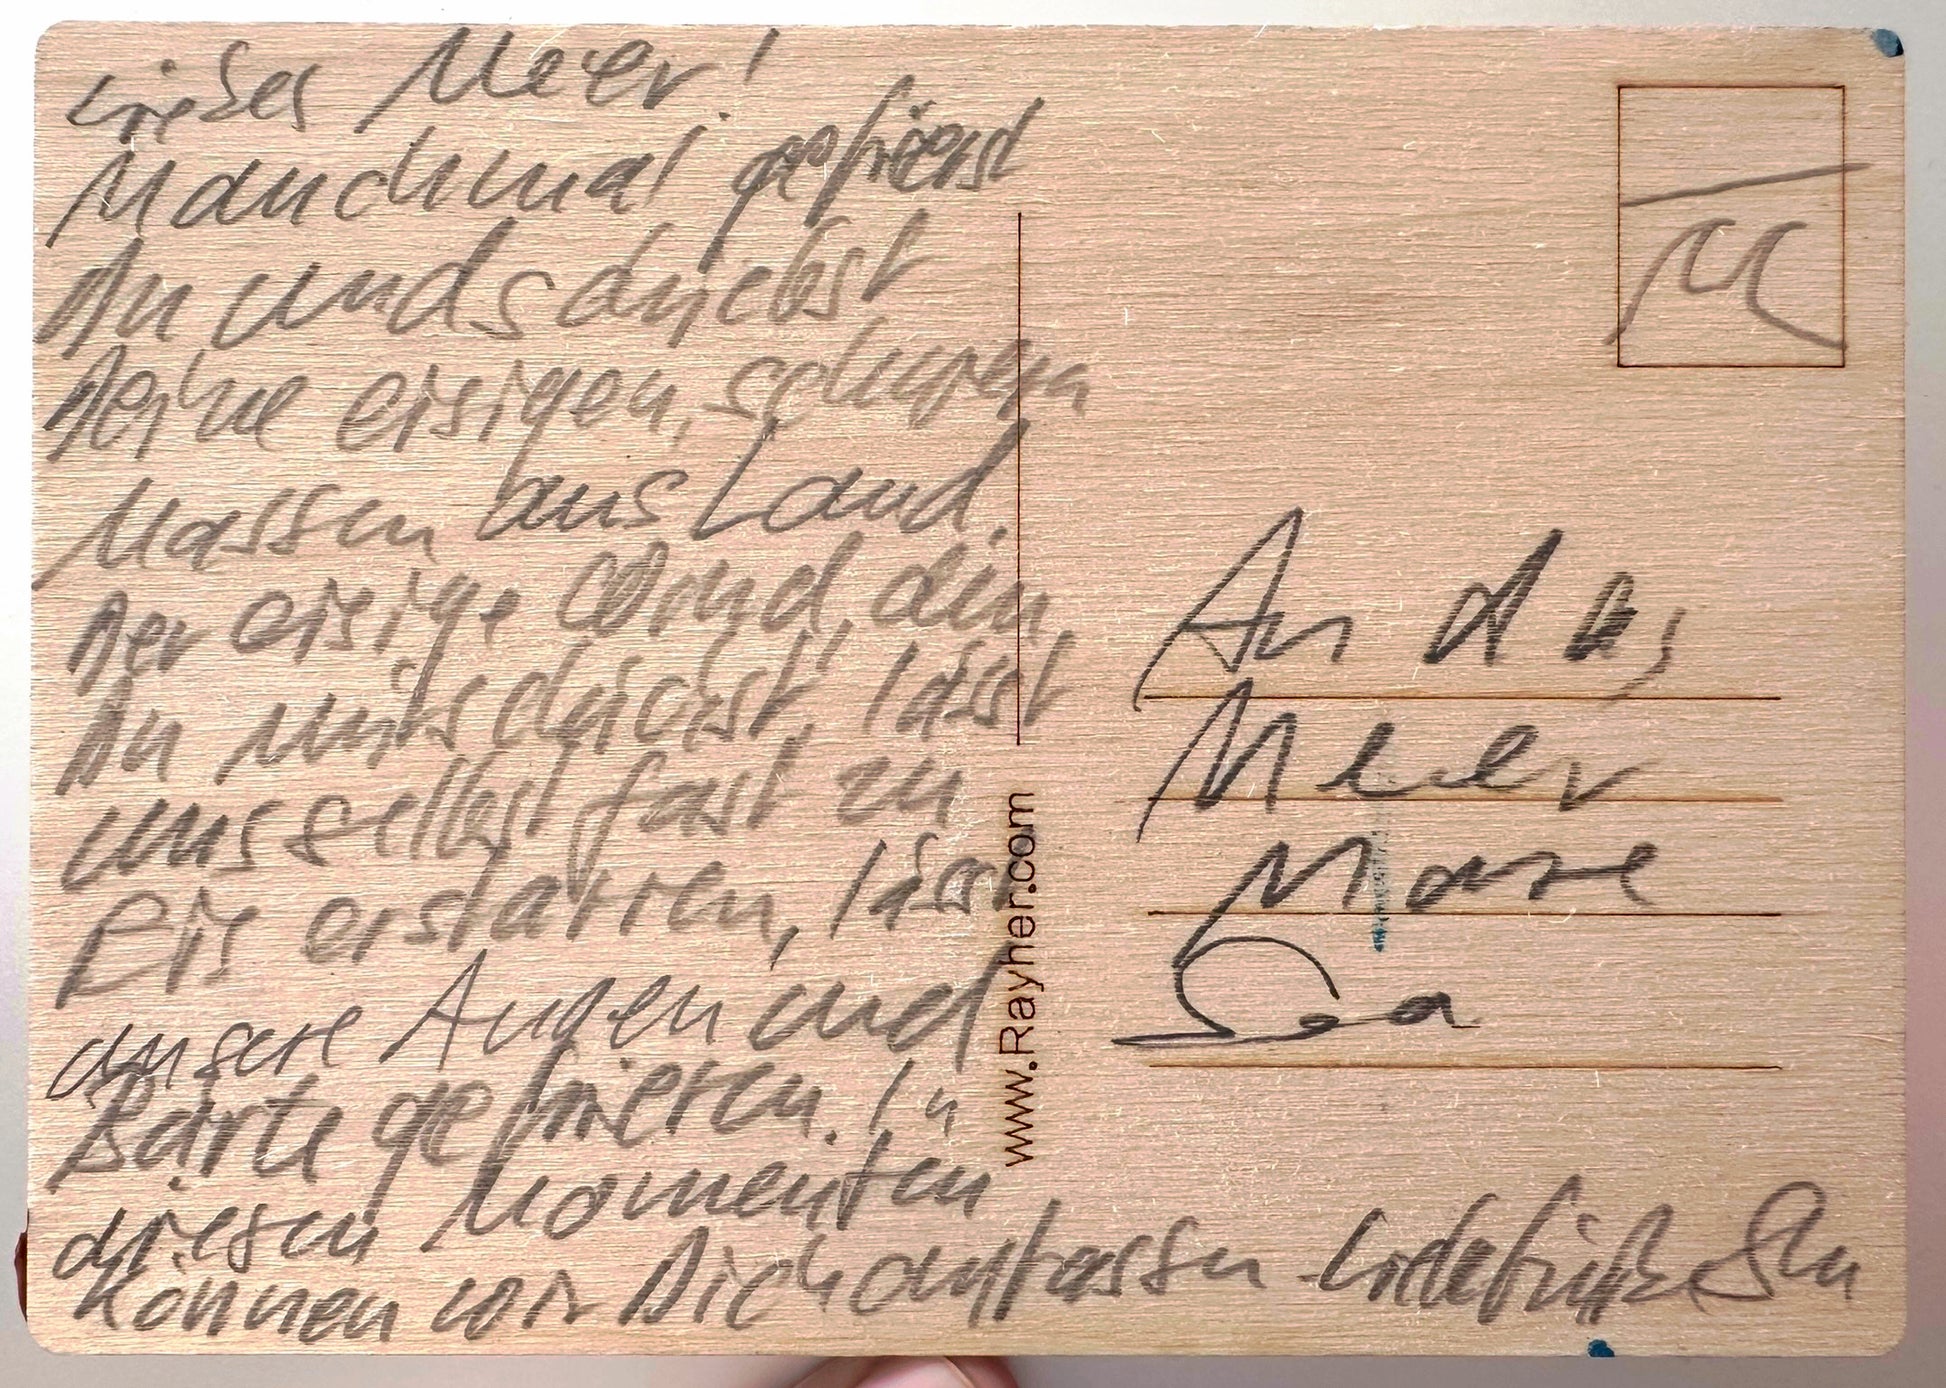 Liebes Meer!
Manchmal gefrierst
Du und schiebst
Deine eisigen, schweren
Massen ans Land.
Der eisige Wind, den
Du mitschickst, lässt
uns selbst fast zu
Eis erstarren, lässt
unsere Augen und
Bärte gefrieren. In
diesen Momenten
können wir Dich anfassen Liebe Grüße
www.Rayher.com
An das
Meer
Mare
Sea